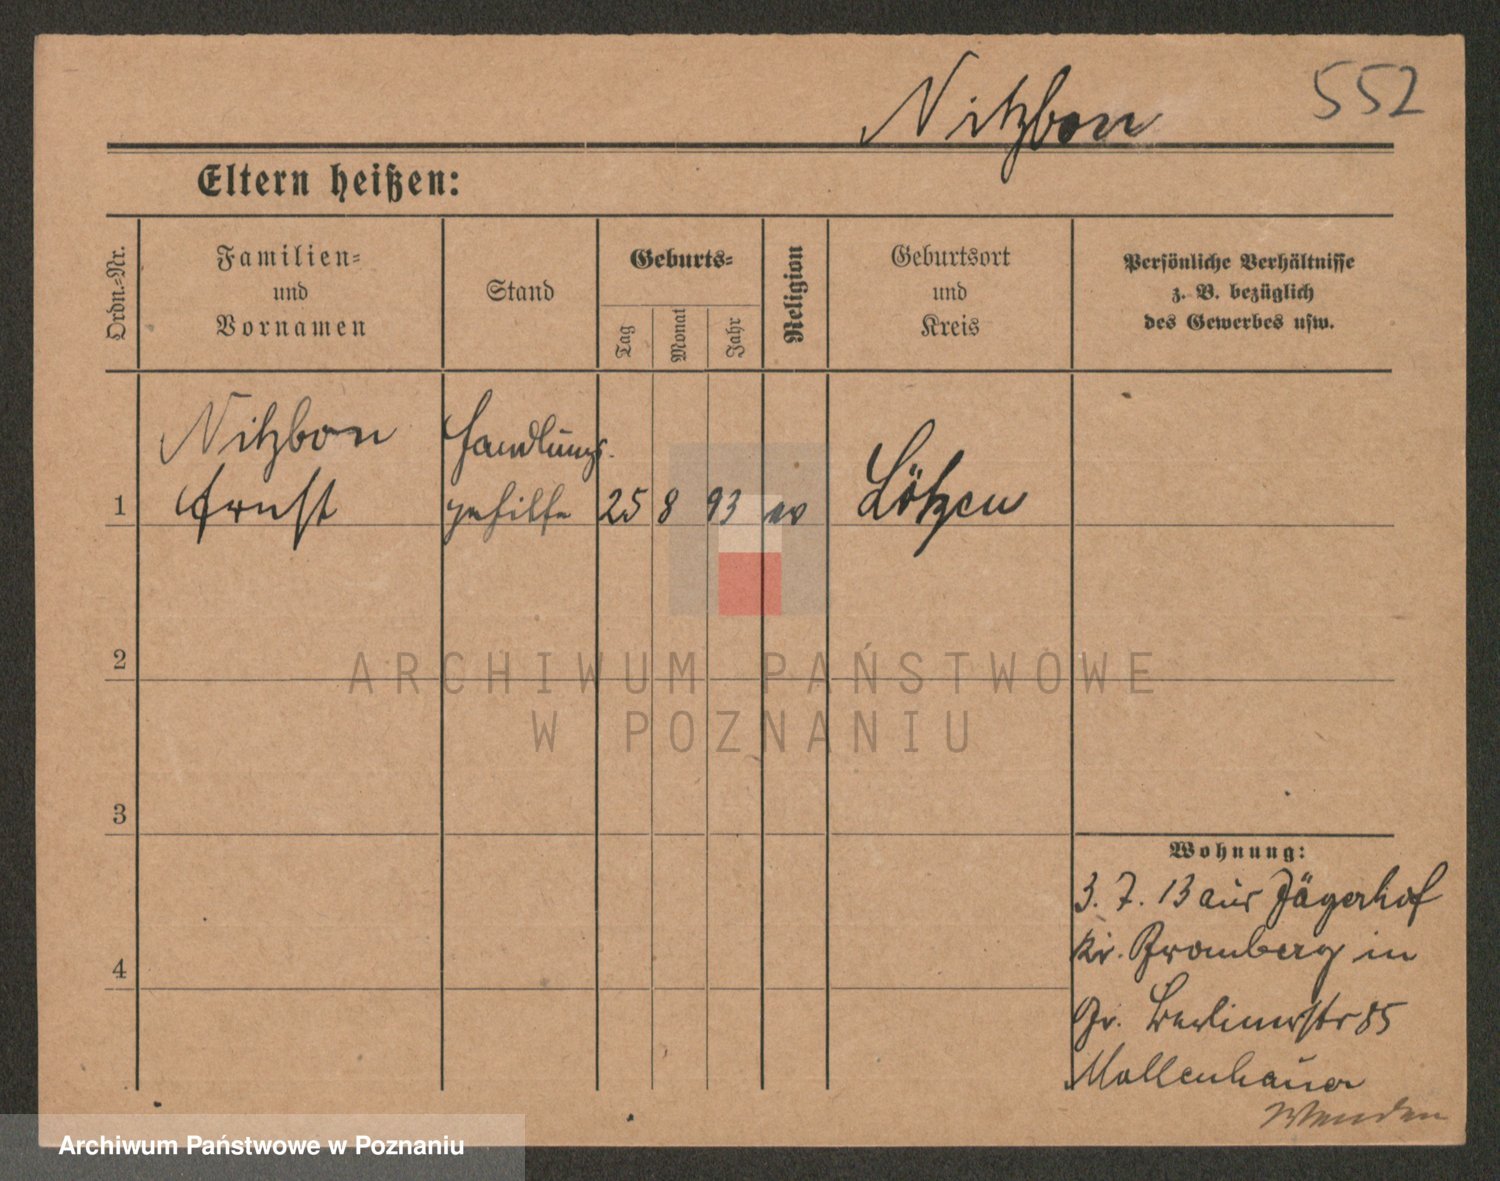 552
Nitzbon
Eltern heißen:
Ordn.-Nr.
Familien-
und
Vornamen
Stand
Geburts-
Tag
Monat
Jahr
Religion
Geburtsort
und
Kreis
Persönliche Verhältnisse
z. B. bezüglich
des Gewerbes usw.
1
Nitzbon
Ernst
Handlungs
gehilfe
25 8 93 ev
Lötzen
2
3
4
Wohnung:
3. 7. 13 aus Jägerhof
Kr. Bromberg in
Br. Berlinerstr 85
Mollenhauer
Wenden
ARCHIWUM PAŃSTWOWE
W POZNANIU
Archiwum Państwowe w Poznaniu